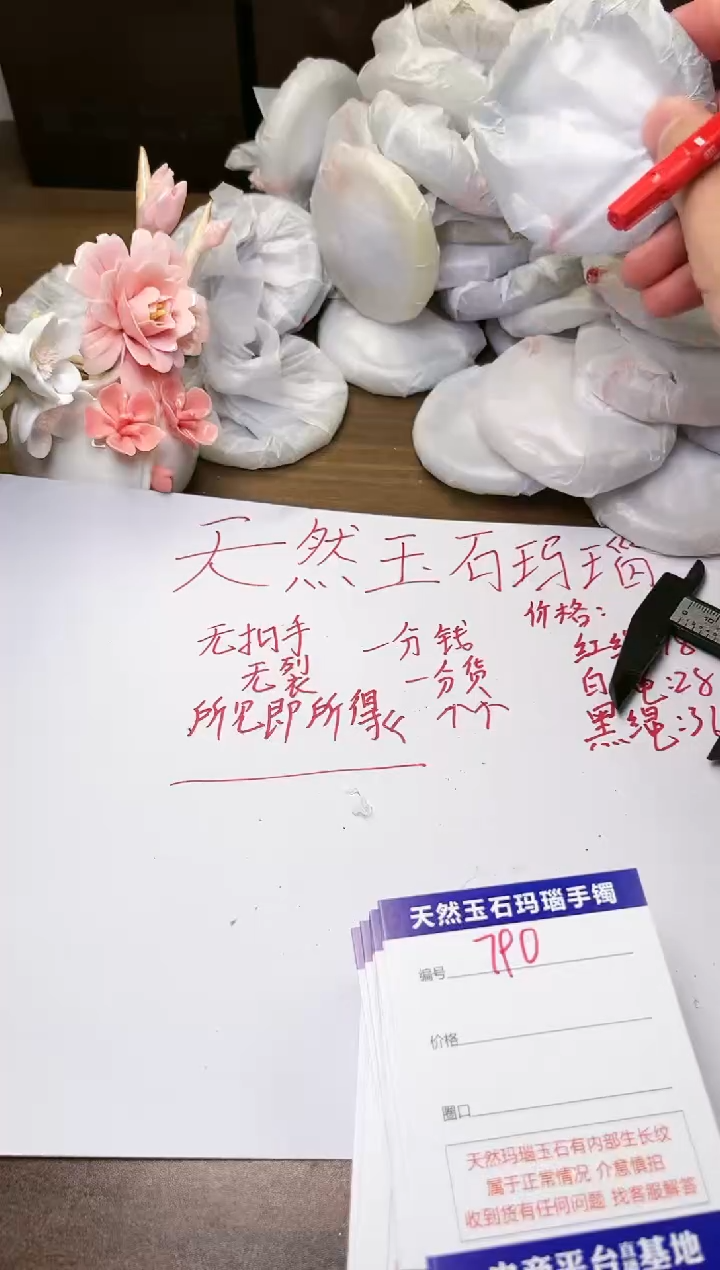 天然玉石玛瑙
无扣手 一分钱 价格:
无裂 一分货 红绳 18
所见即所得 个个 白 绳:28
黑绳:31
天然玉石玛瑙手镯
编号 790
价格
圈口
天然玛瑙玉石有内部生长纹
属于正常情况 介意慎拍
收到货有任何问题 找客服解答
电商平台直播基地